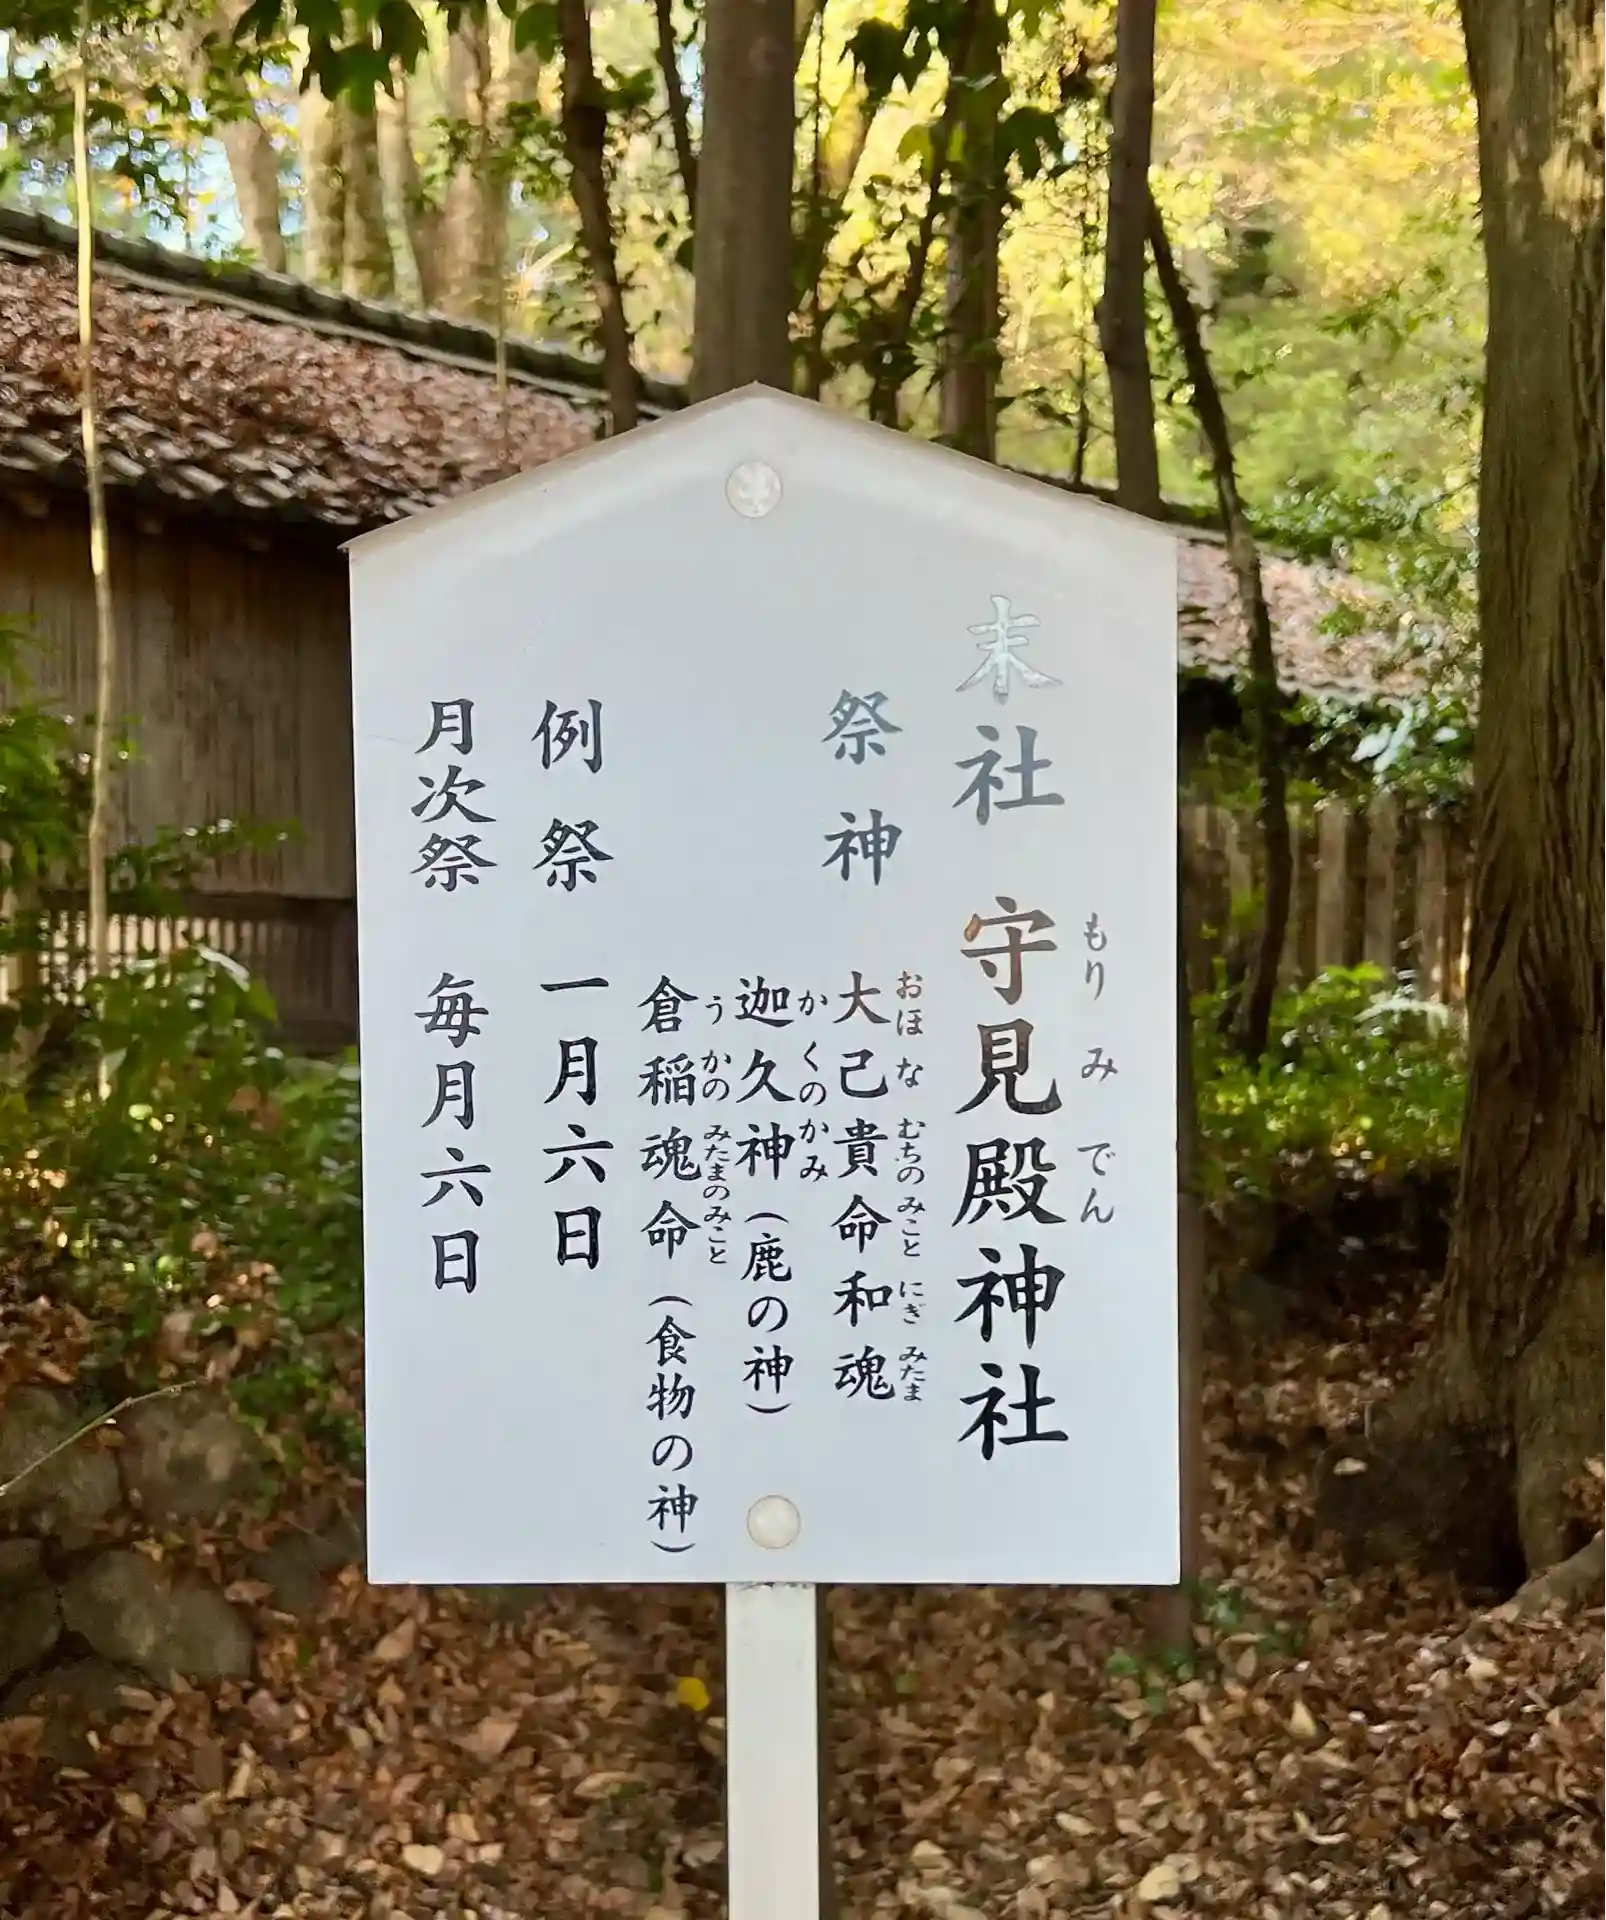 末社 守見殿神社
もりみでん
祭神 大己貴命和魂
おほなむちのみことにぎみたま
迦久神(鹿の神)
かくのかみ
倉稲魂命(食物の神)
うかのみたまのみこと
例祭 一月六日
月次祭 毎月六日